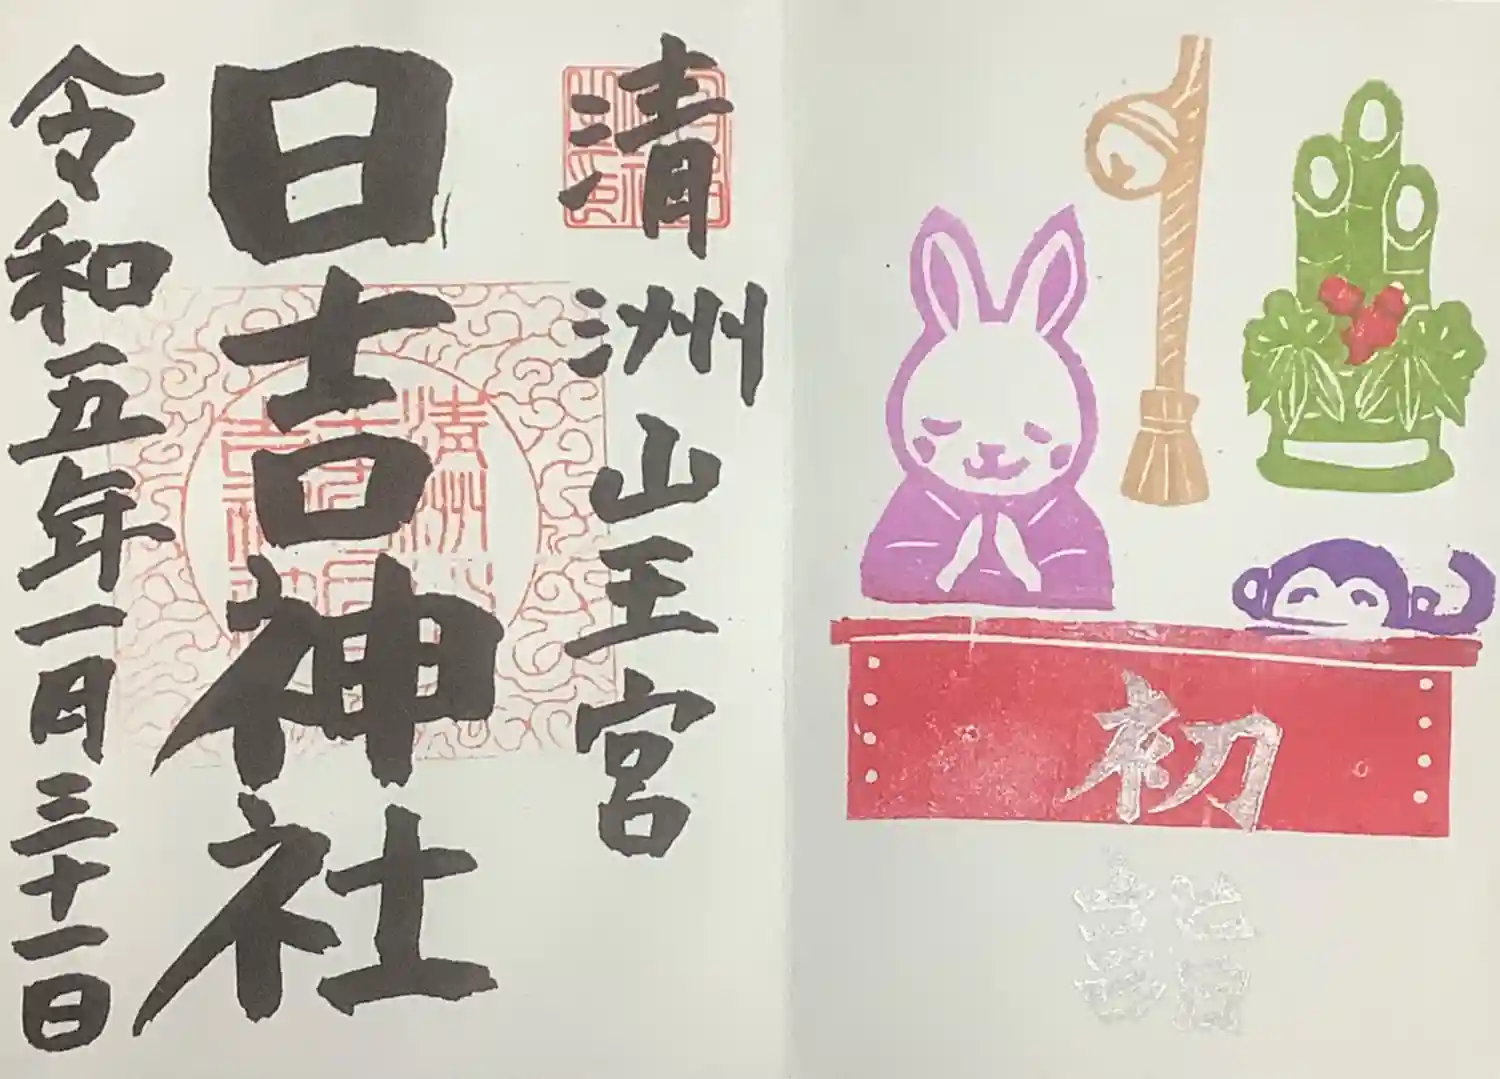 清洲山王宮
日吉神社
令和五年一月三十一日
初詣